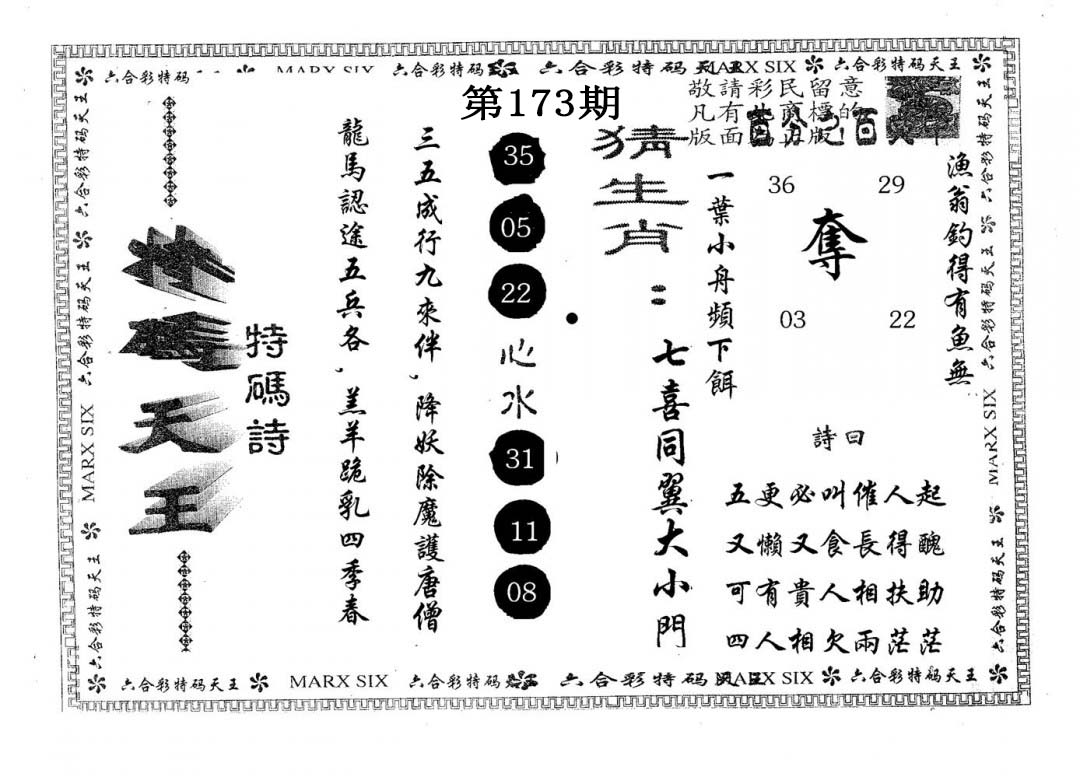 六合彩特码
MARX SIX
六合彩特码
六合彩特码天王
MARX SIX
六合彩特码天王
第173期
敬請彩民留意
凡有
商標的
版面
版
漁翁釣得有魚無
一葉小舟頻下餌
36
29
奪
03
22
詩曰
五更必叫催人起
又懶又食長得醜
可有貴人相扶助
四人相欠兩茫茫
猜生肖：
七喜同翼大小門
35
05
22
心水
31
11
08
三五成行九來伴，降妖除魔護唐僧
龍馬認途五兵各，羔羊跪乳四季春
特碼詩
特碼天王
六合彩特码天王
六合彩特码天王
MARX SIX
六合彩特码天王
六合彩特码天王
六合彩特码天王
MARX SIX
六合彩特码天王
六合彩特码天王
MARX SIX
六合彩特码
六合彩特码
MARX SIX
六合彩特码天王